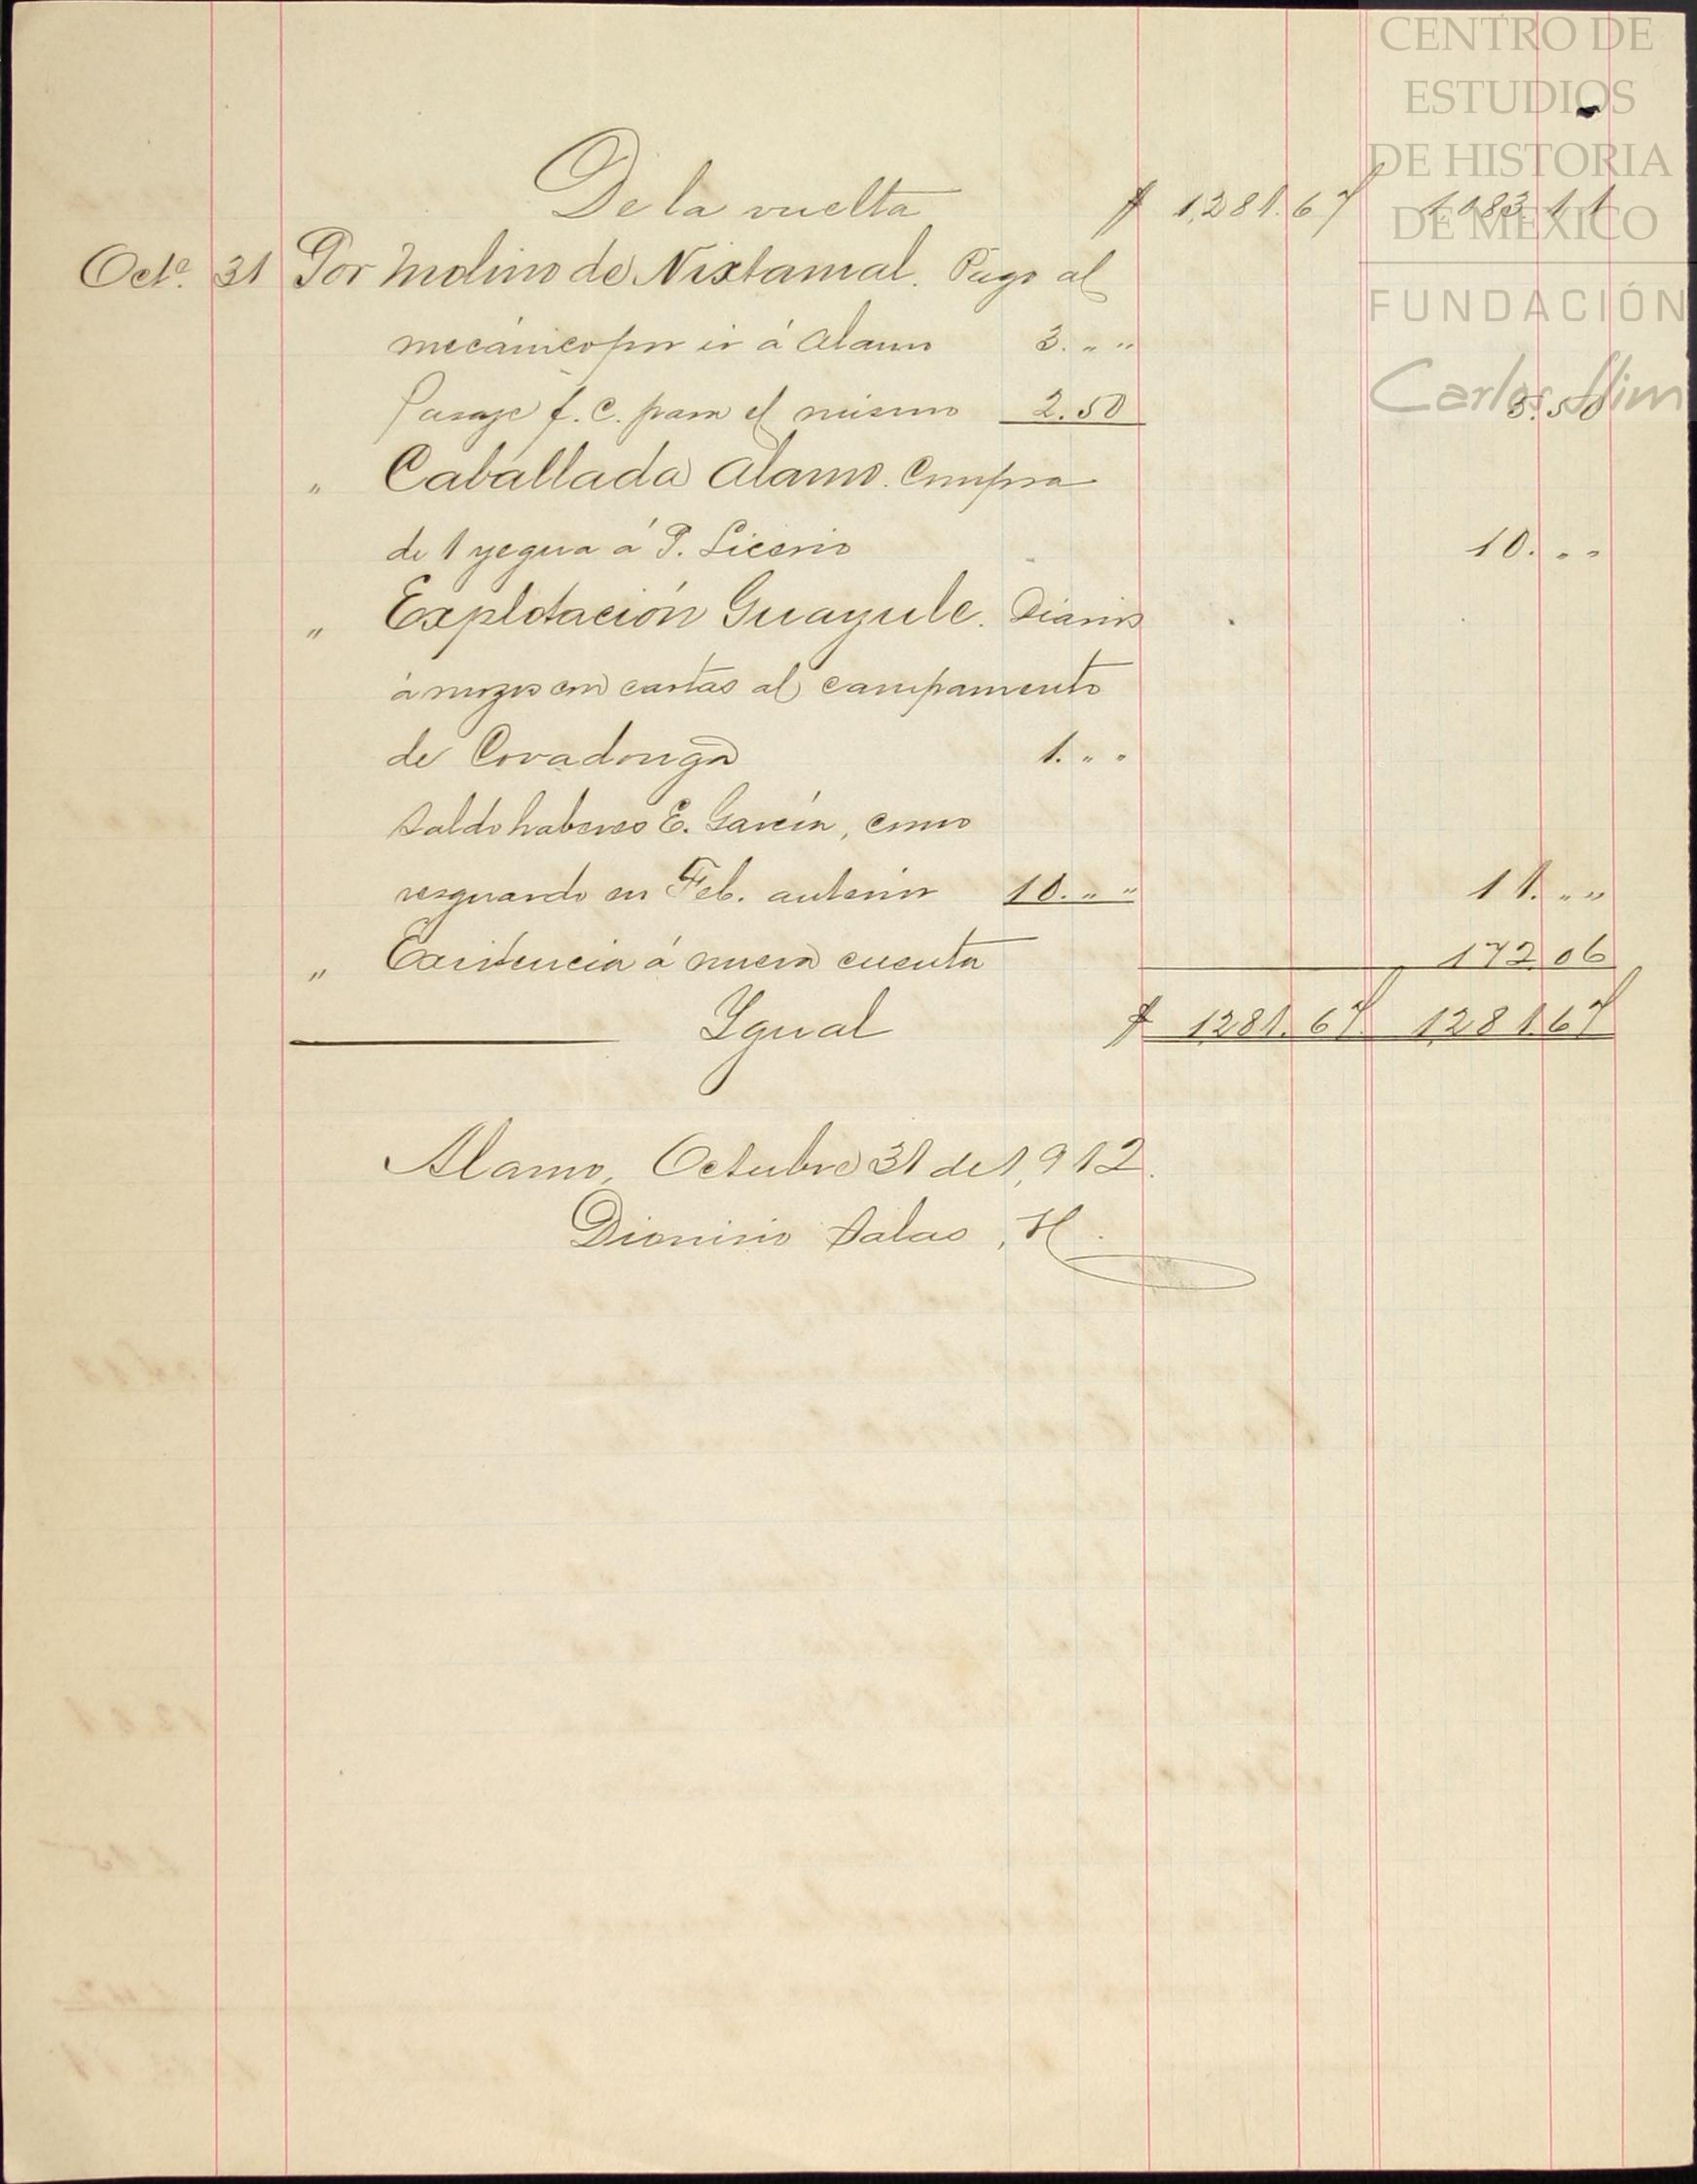 CENTRO DE
ESTUDIOS
DE HISTORIA
DE MÉXICO
FUNDACIÓN
Carlos Slim
De la vuelta $ 1,281.67 1,083.11
Octe. 31 Por Molino de Nixtamal. Pago al
mecánico por ir á Alamo 3. „ „
Pasaje f. c. para el mismo 2.50 5.50
„ Caballada Alamo. Compra
de 1 yegua á P. Licerio 10. „ „
„ Explotación Guayule. Diarios
á mozos con cartas al campamento
de Covadonga 1. „ „
Saldo haberes E. García, como
resguardo en Feb. anterior 10. „ „ 11. „ „
„ Existencia á nueva cuenta 172.06
Ygual $ 1,281.67 1,281.67
Alamo, Octubre 31 de 1,912.
Dionisio Salas, H.